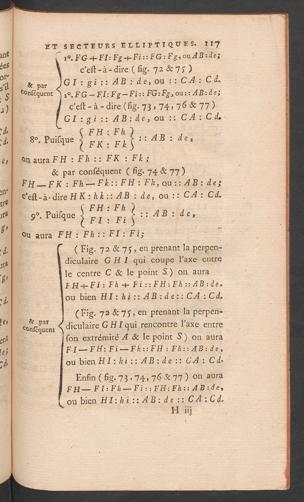 ET SECTEURS ELLIPTIQUES. 117
1°. FG+FI: Fg+Fi :: FG: Fg, ou AB: de;
c'est-à-dire (fig. 72 & 75)
GI: gi :: AB: de, ou :: CA: Cd.
& par conséquent
1°. FG—FI: Fg—Fi :: FG: Fg, ou :: AB: de;
c'est-à-dire (fig. 73, 74, 76 & 77)
GI: gi :: AB: de, ou :: CA: Cd.
8°. Puisque { FH: Fh } { FK: Fk } :: AB: de,
on aura FH: Fh :: FK: Fk;
& par conséquent (fig. 74 & 77)
FH—FK: Fh—Fk :: FH: Fh, ou :: AB: de;
c'est-à-dire HK: hk :: AB: de, ou :: CA: Cd.
9°. Puisque { FH: Fh } { FI: Fi } :: AB: de,
on aura FH: Fh :: FI: Fi;
(Fig. 72 & 75, en prenant la perpen-
diculaire GHI qui coupe l'axe entre
le centre C & le point S) on aura
FH+FI: Fh+Fi :: FH: Fh :: AB: de,
ou bien HI: hi :: AB: de :: CA: Cd.
(Fig. 72 & 75, en prenant la perpen-
& par conséquent
diculaire GHI qui rencontre l'axe entre
son extrémité A & le point S) on aura
FI—FH: Fi—Fh :: FH: Fh :: AB: de,
ou bien HI: hi :: AB: de :: CA: Cd.
Enfin (fig. 73, 74, 76 & 77) on aura
FH—FI: Fh—Fi :: FH: Fh :: AB: de,
ou bien HI: hi :: AB: de :: CA: Cd.
H iij